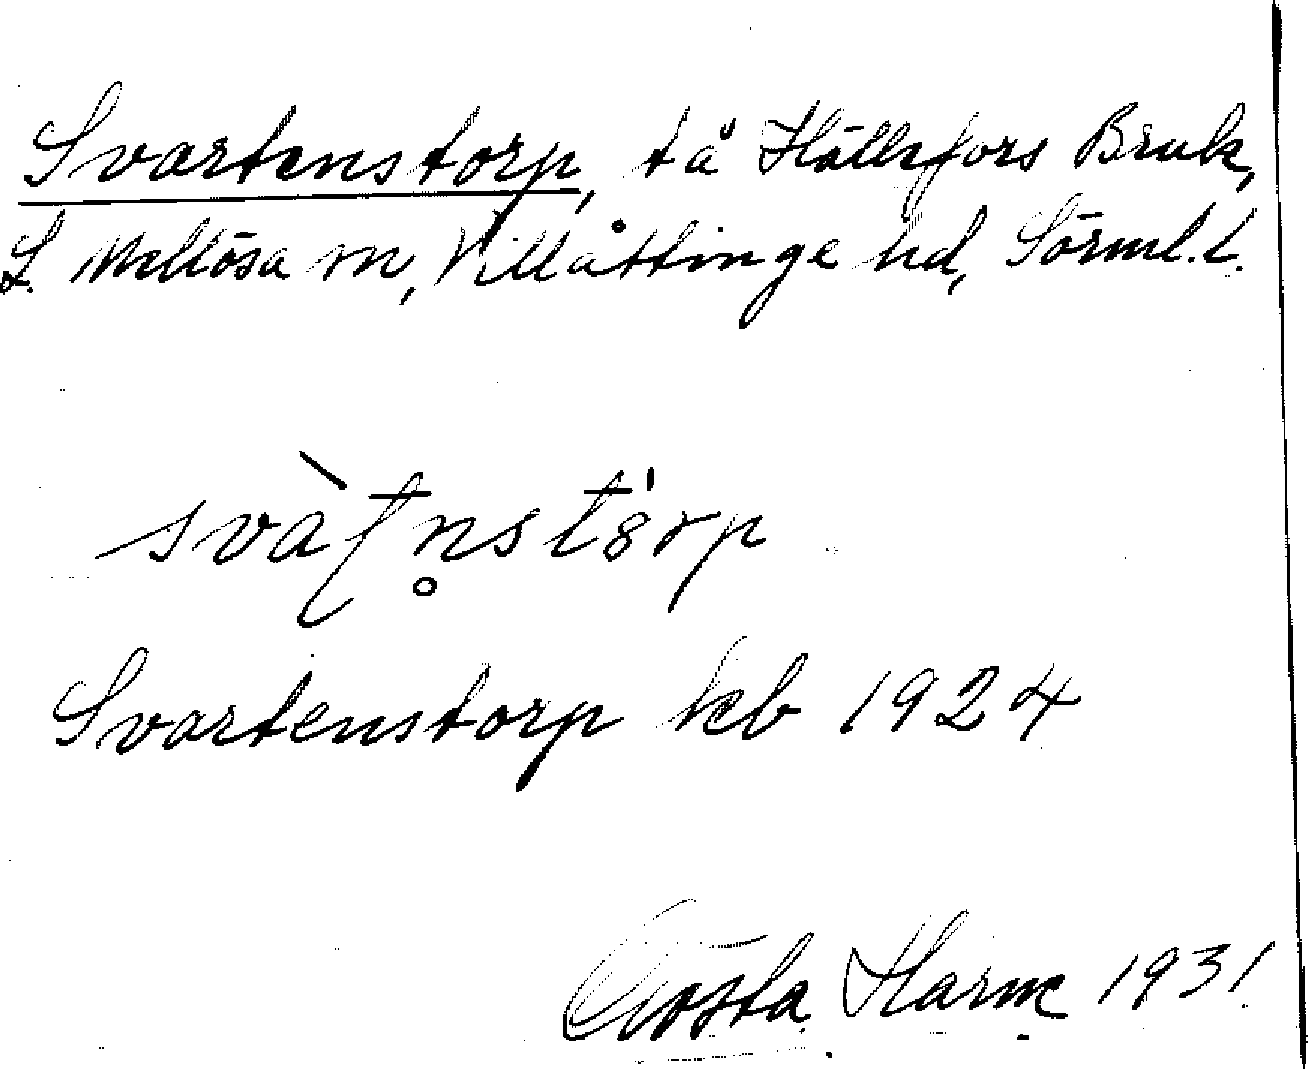 Svartenstorp, tå Hällefors Bruk,
L. Mellösa sn, Villåttinge hd, Sörml. l.
svàʈn̥stɔ̄rp
Svartenstorp kb 1924
Gösta Harm 1931